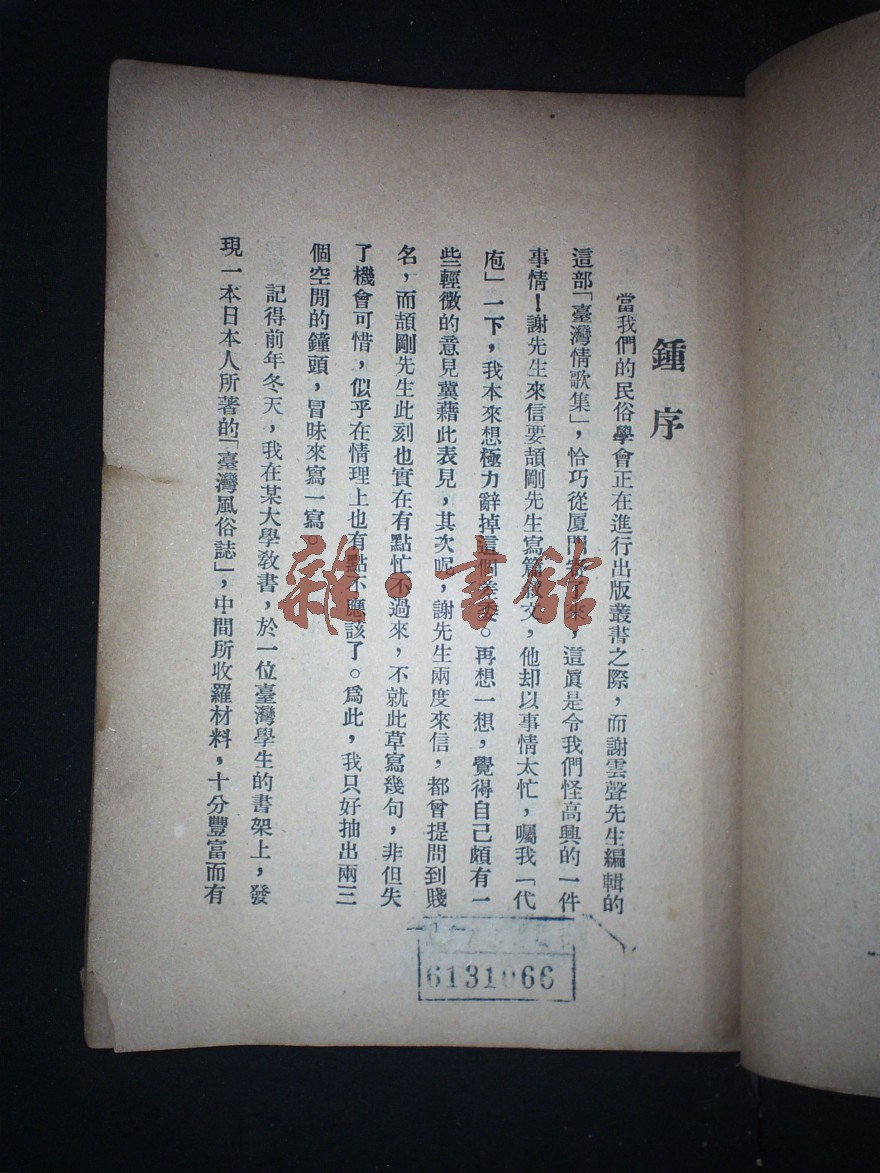 鍾序
當我們的民俗學會正在進行出版叢書之際，而謝雲聲先生編輯的
這部「臺灣情歌集」，恰巧從厦門寄了來，這眞是令我們怪高興的一件
事情！謝先生來信要頡剛先生寫篇敘文，他却以事情太忙，囑我「代
庖」一下，我本來想極力辭掉這個差委。再想一想，覺得自己頗有一
些輕微的意見冀藉此表見，其次呢，謝先生兩度來信，都曾提問到賤
名，而頡剛先生此刻也實在有點忙不過來，不就此草寫幾句，非但失
了機會可惜，似乎在情理上也有點不應該了。爲此，我只好抽出兩三
個空閒的鐘頭，冒昧來寫一寫。
記得前年冬天，我在某大學敎書，於一位臺灣學生的書架上，發
現一本日本人所著的「臺灣風俗誌」，中間所收羅材料，十分豐富而有
雜·書館
6131066